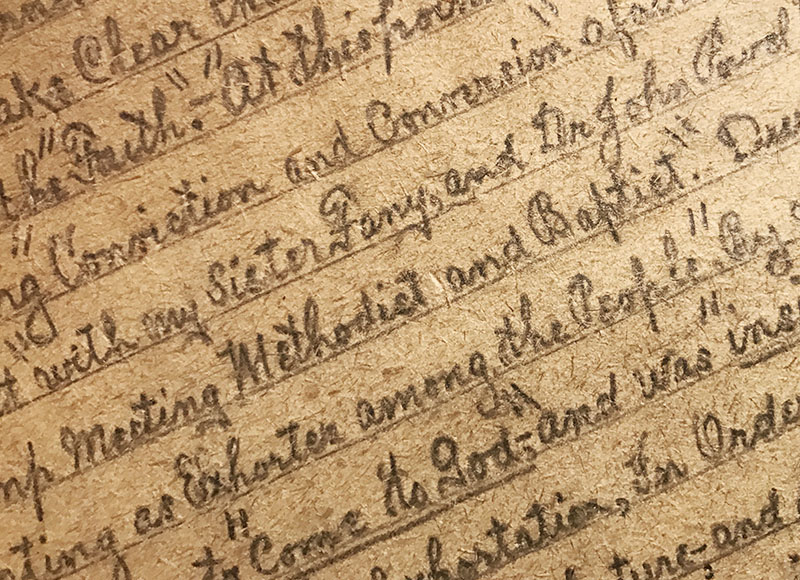 ake Clear th
the "Faith".- "At this poin
ng "Conviction and Conversion of
t" with my Sister Fany, and Dr John
mp Meeting Methodist and Baptist". Du
ting as Exhorter among the People" By
to "Come to God;- and was ins
xhortation, In Orde
ture,- and